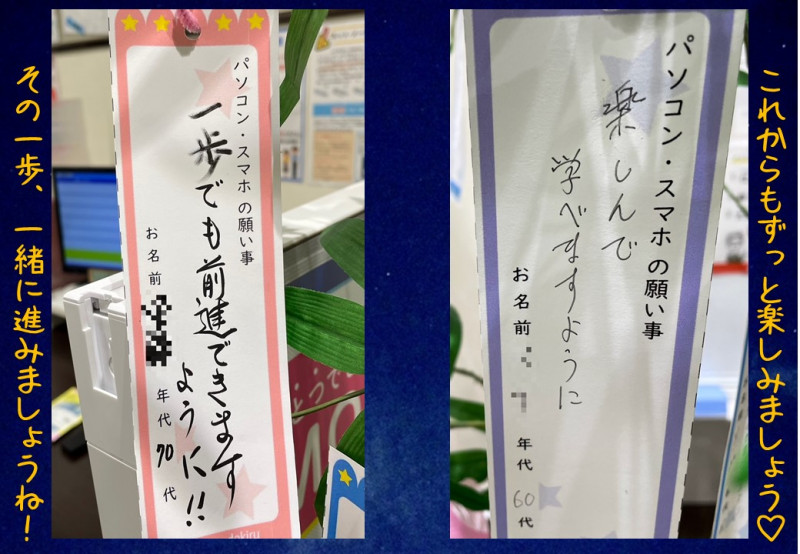 これからもずっと楽しみましょう♡
パソコン・スマホ の願い事
楽しんで
学べますように
お名前
年代 60 代
パソコン・スマホ の願い事
一歩でも前進できます
ように!!
お名前
年代 70 代
dekiru
その一歩、一緒に進みましょうね!